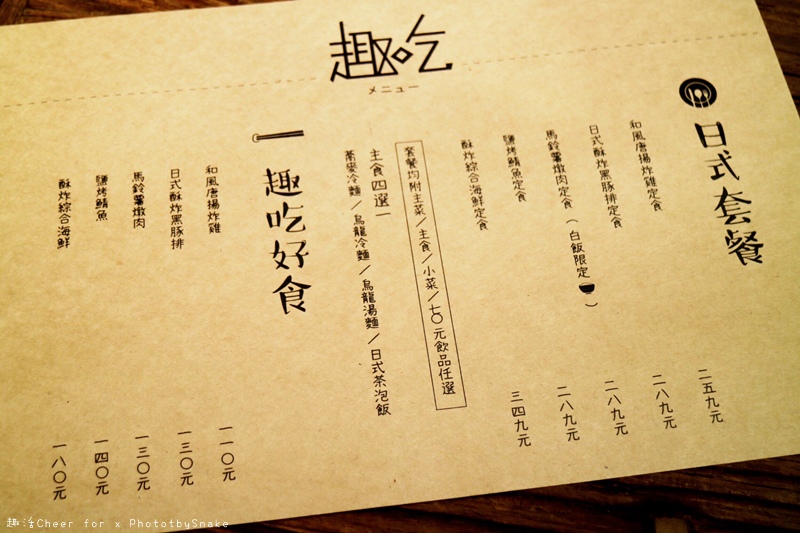 趣吃
メニュー
日式套餐
和風唐揚炸雞定食 二五九元
日式酥炸黑豚排定食 二八九元
馬鈴薯燉肉定食（白飯限定） 二八九元
鹽烤鯖魚定食 二八九元
酥炸綜合海鮮定食 三四九元
套餐均附主菜／主食／小菜／七〇元飲品任選
主食四選一
蕎麥冷麵／烏龍冷麵／烏龍湯麵／日式茶泡飯
趣吃好食
和風唐揚炸雞 一一〇元
日式酥炸黑豚排 一三〇元
馬鈴薯燉肉 一三〇元
鹽烤鯖魚 一四〇元
酥炸綜合海鮮 一八〇元
趣活Cheer for x PhototbySnake